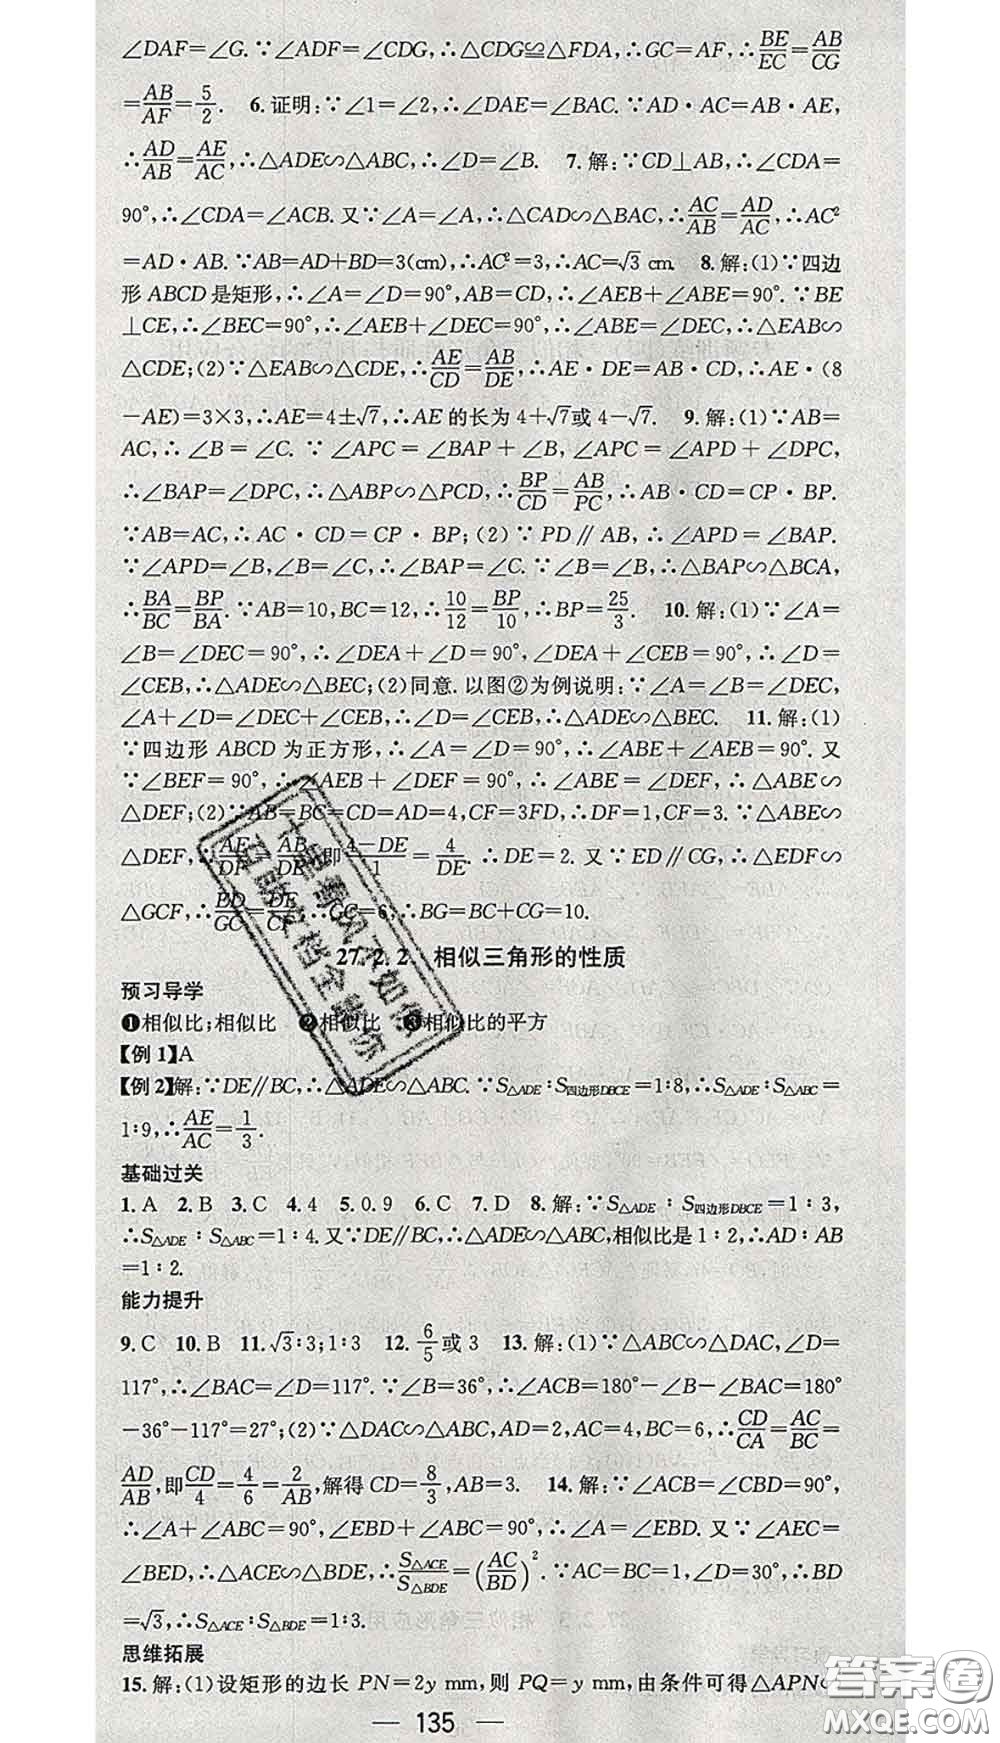 ∠DAF=∠G.∵∠ADF=∠CDG,∴△CDG≌△FDA,∴GC=AF,∴BE/EC=AB/CG
=AB/AF=5/2. 6.证明:∵∠1=∠2,∴∠DAE=∠BAC.∵AD·AC=AB·AE,
∴AD/AB=AE/AC,∴△ADE∽△ABC,∴∠D=∠B. 7.解:∵CD⊥AB,∴∠CDA=
90°,∴∠CDA=∠ACB.又∵∠A=∠A,∴△CAD∽△BAC,∴AC/AB=AD/AC,∴AC²
=AD·AB.∵AB=AD+BD=3(cm),∴AC²=3,∴AC=√3 cm. 8.解:(1)∵四边
形ABCD是矩形,∴∠A=∠D=90°,AB=CD,∴∠AEB+∠ABE=90°.∵BE
⊥CE,∴∠BEC=90°,∴∠AEB+∠DEC=90°,∴∠ABE=∠DEC,∴△EAB∽
△CDE;(2)∵△EAB∽△CDE,∴AE/CD=AB/DE,∴AE·DE=AB·CD,∴AE·(8
-AE)=3×3,∴AE=4±√7,∴AE的长为4+√7或4-√7. 9.解:(1)∵AB=
AC,∴∠B=∠C.∵∠APC=∠BAP+∠B,∠APC=∠APD+∠DPC,
∴∠BAP=∠DPC,∴△ABP∽△PCD,∴BP/CD=AB/PC,∴AB·CD=CP·BP.
∵AB=AC,∴AC·CD=CP·BP;(2)∵PD∥AB,∴∠APD=∠BAP.
∵∠APD=∠B,∠B=∠C,∴∠BAP=∠C.∵∠B=∠B,∴△BAP∽△BCA,
∴BA/BC=BP/BA.∵AB=10,BC=12,∴10/12=BP/10,∴BP=25/3. 10.解:(1)∵∠A=
∠B=∠DEC=90°,∴∠DEA+∠D=90°,∠DEA+∠CEB=90°,∴∠D=
∠CEB,∴△ADE∽△BEC;(2)同意.以图②为例说明:∵∠A=∠B=∠DEC,
∠A+∠D=∠DEC+∠CEB,∴∠D=∠CEB,∴△ADE∽△BEC. 11.解:(1)
∵四边形ABCD为正方形,∴∠A=∠D=90°,∴∠ABE+∠AEB=90°.又
∵∠BEF=90°,∴∠AEB+∠DEF=90°,∴∠ABE=∠DEF,∴△ABE∽
△DEF;(2)∵AB=BC=CD=AD=4,CF=3FD,∴DF=1,CF=3.∵△ABE∽
△DEF,∴AE/DF=AB/DE,即4-DE/1=4/DE.∴DE=2.又∵ED∥CG,∴△EDF∽
△GCF,∴ED/GC=DF/CF,∴GC=6,∴BG=BC+CG=10.
27.2.2 相似三角形的性质
预习导学
❶相似比;相似比 ❷相似比 ❸相似比的平方
【例1】A
【例2】解:∵DE∥BC,∴△ADE∽△ABC.∵S△ADE∶S四边形DBCE=1∶8,∴S△ADE∶S△ABC=
1∶9,∴AE/AC=1/3.
基础过关
1.A 2.B 3.C 4.4 5.0.9 6.C 7.D 8.解:∵S△ADE∶S四边形DBCE=1∶3,
∴S△ADE∶S△ABC=1∶4.又∵DE∥BC,∴△ADE∽△ABC,相似比是1∶2,∴AD∶AB
=1∶2.
能力提升
9.C 10.B 11.√3∶3;1∶3 12.6/5或3 13.解:(1)∵△ABC∽△DAC,∠D=
117°,∴∠BAC=∠D=117°.∵∠B=36°,∴∠ACB=180°-∠B-∠BAC=180°
-36°-117°=27°;(2)∵△DAC∽△ABC,AD=2,AC=4,BC=6,∴CD/CA=AC/BC=
AD/AB,即CD/4=4/6=2/AB,解得CD=8/3,AB=3. 14.解:∵∠ACB=∠CBD=90°,
∴∠A+∠ABC=90°,∠EBD+∠ABC=90°,∴∠A=∠EBD.又∵∠AEC=
∠BED,∴△ACE∽△BDE,∴S△ACE/S△BDE=(AC/BD)².∵AC=BC=1,∠D=30°,∴BD
=√3,∴S△ACE∶S△BDE=1∶3.
思维拓展
15.解:(1)设矩形的边长PN=2y mm,则PQ=y mm,由条件可得△APN∽
— 135 —
十里春风不如你
百萌文档全靠你
答案圈
MXQE.COM